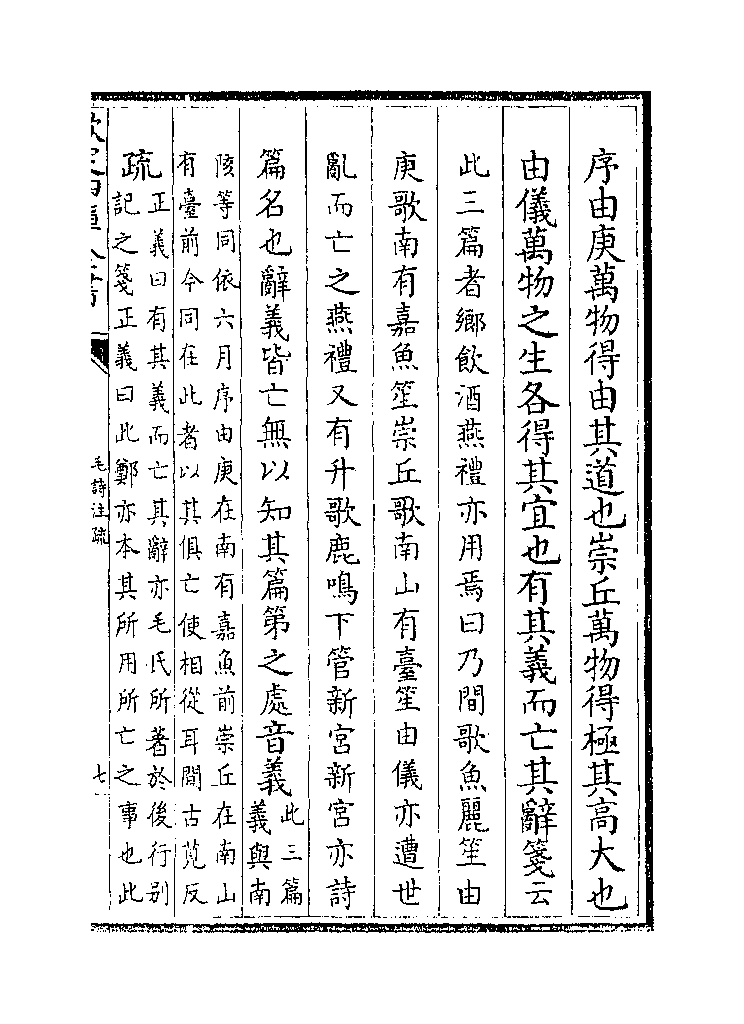 序由庚萬物得由其道也崇丘萬物得極其高大也
由儀萬物之生各得其宜也有其義而亡其辭箋云
此三篇者鄉飲酒燕禮亦用焉曰乃間歌魚麗笙由
庚歌南有嘉魚笙崇丘歌南山有臺笙由儀亦遭世
亂而亡之燕禮又有升歌鹿鳴下管新宫新宫亦詩
篇名也辭義皆亡無以知其篇第之處音義
此三篇
義與南
陔等同依六月序由庚在南有嘉魚前崇丘在南山
有臺前今同在此者以其俱亡使相從耳間古莧反
疏
正義曰有其義而亡其辭亦毛氏所著於後行别
記之箋正義曰此鄭亦本其所用所亡之事也此
毛詩注疏
七